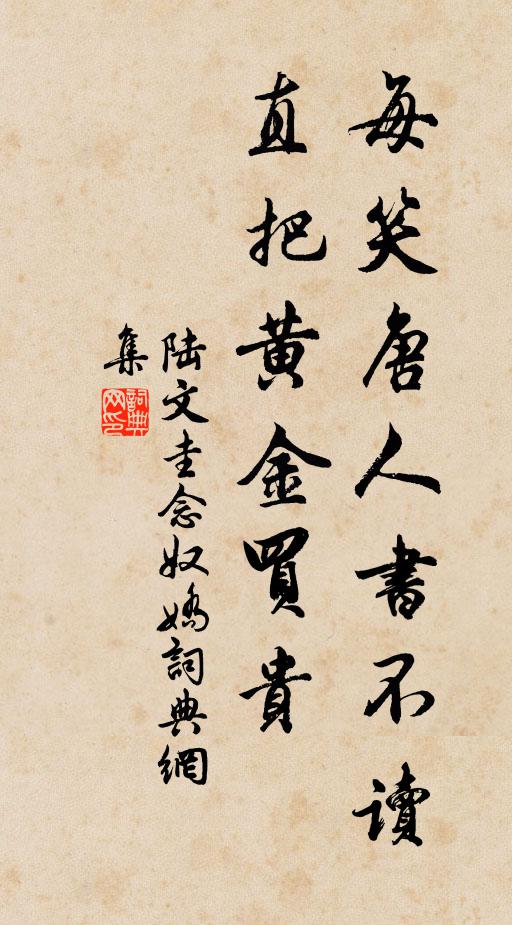 每笑唐人書不讀
直把黃金買貴
陸文圭念奴嬌詞典網
集
詞典網印